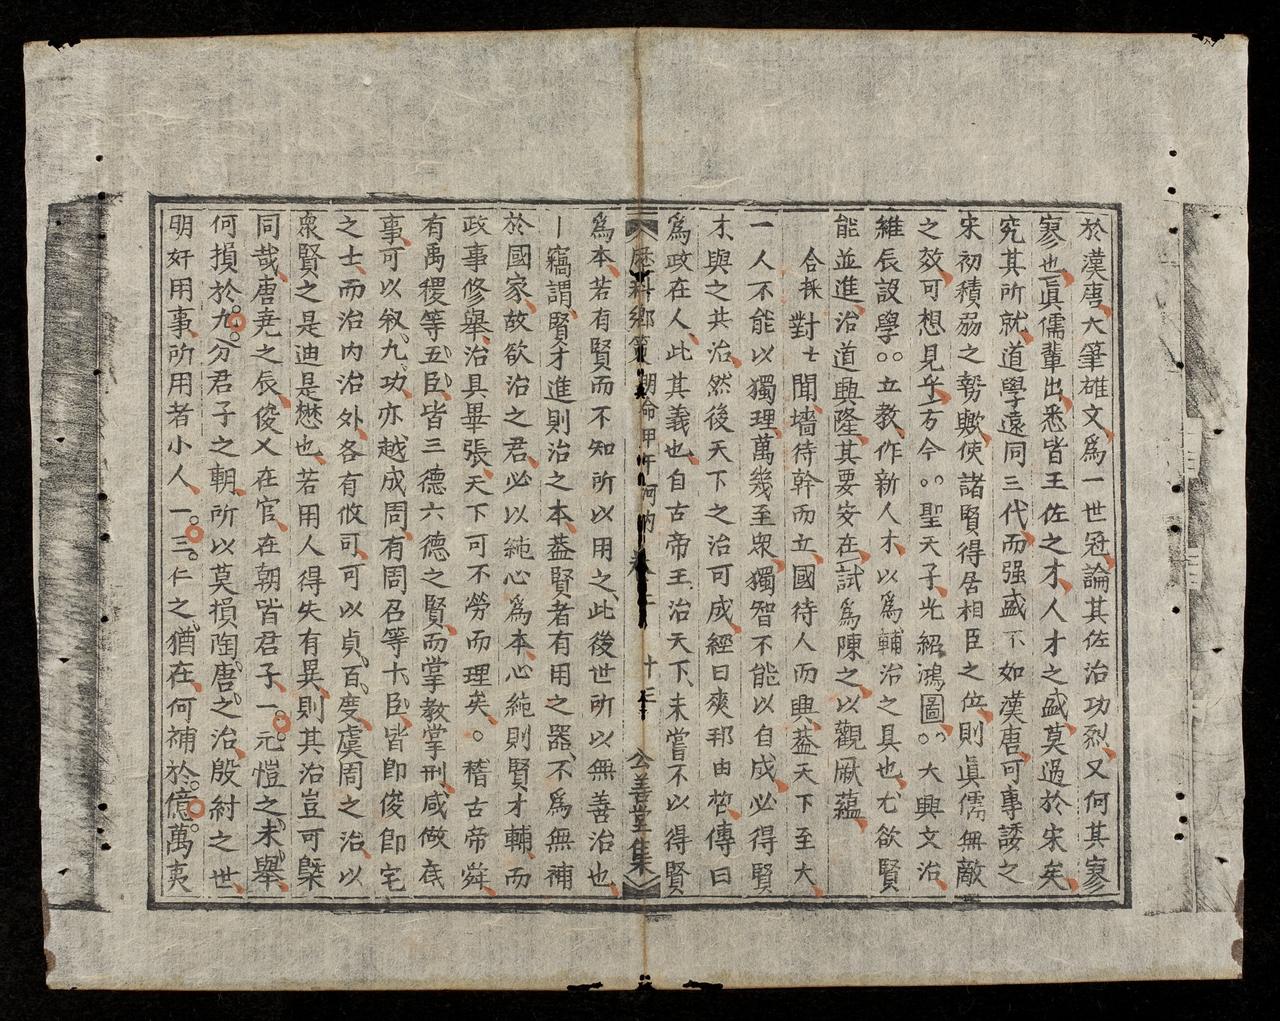 於漢唐大筆雄文爲一世冠論其佐治功烈又何其寥
寥也眞儒輩出悉皆王佐之才人才之盛莫過於宋矣
究其所就道學遠同三代而强盛不如漢唐可專諉之
宋初積弱之勢歟使諸賢得居相臣之位則眞儒無敵
之效可想見乎方今聖天子光紹鴻圖大興文治
維辰設學立教作新人才以爲輔治之具也尤欲賢
能並進治道興隆其要安在試爲陳之以觀厥蘊
合採對士聞墻待幹而立國待人而興葢天下至大
一人不能以獨理萬幾至衆獨智不能以自成必得賢
才與之共治然後天下之治可成經曰爽邦由哲傳曰
爲政在人此其義也自古帝王治天下未嘗不以得賢
歷科鄉策 朝命甲午河內 卷二 十三 公善堂集
爲本若有賢而不知所以用之此後世所以無善治也
竊謂賢才進則治之本葢賢者有用之器不爲無補
於國家故欲治之君必以純心爲本心純則賢才輔而
政事修舉治具畢張天下可不勞而理矣稽古帝舜
有禹稷等五臣皆三德六德之賢而掌教掌刑咸倣底
事可以叙九功亦越成周有周召等十臣皆卽俊卽宅
之士而治內治外各有攸可可以貞百度虞周之治以
衆賢之是迪是懋也若用人得失有異則其治豈可槩
同哉唐堯之辰俊乂在官在朝皆君子一元愷之未舉
何損於九分君子之朝所以莫損陶唐之治殷紂之世
明奸用事所用者小人一三仁之猶在何補於億萬夷